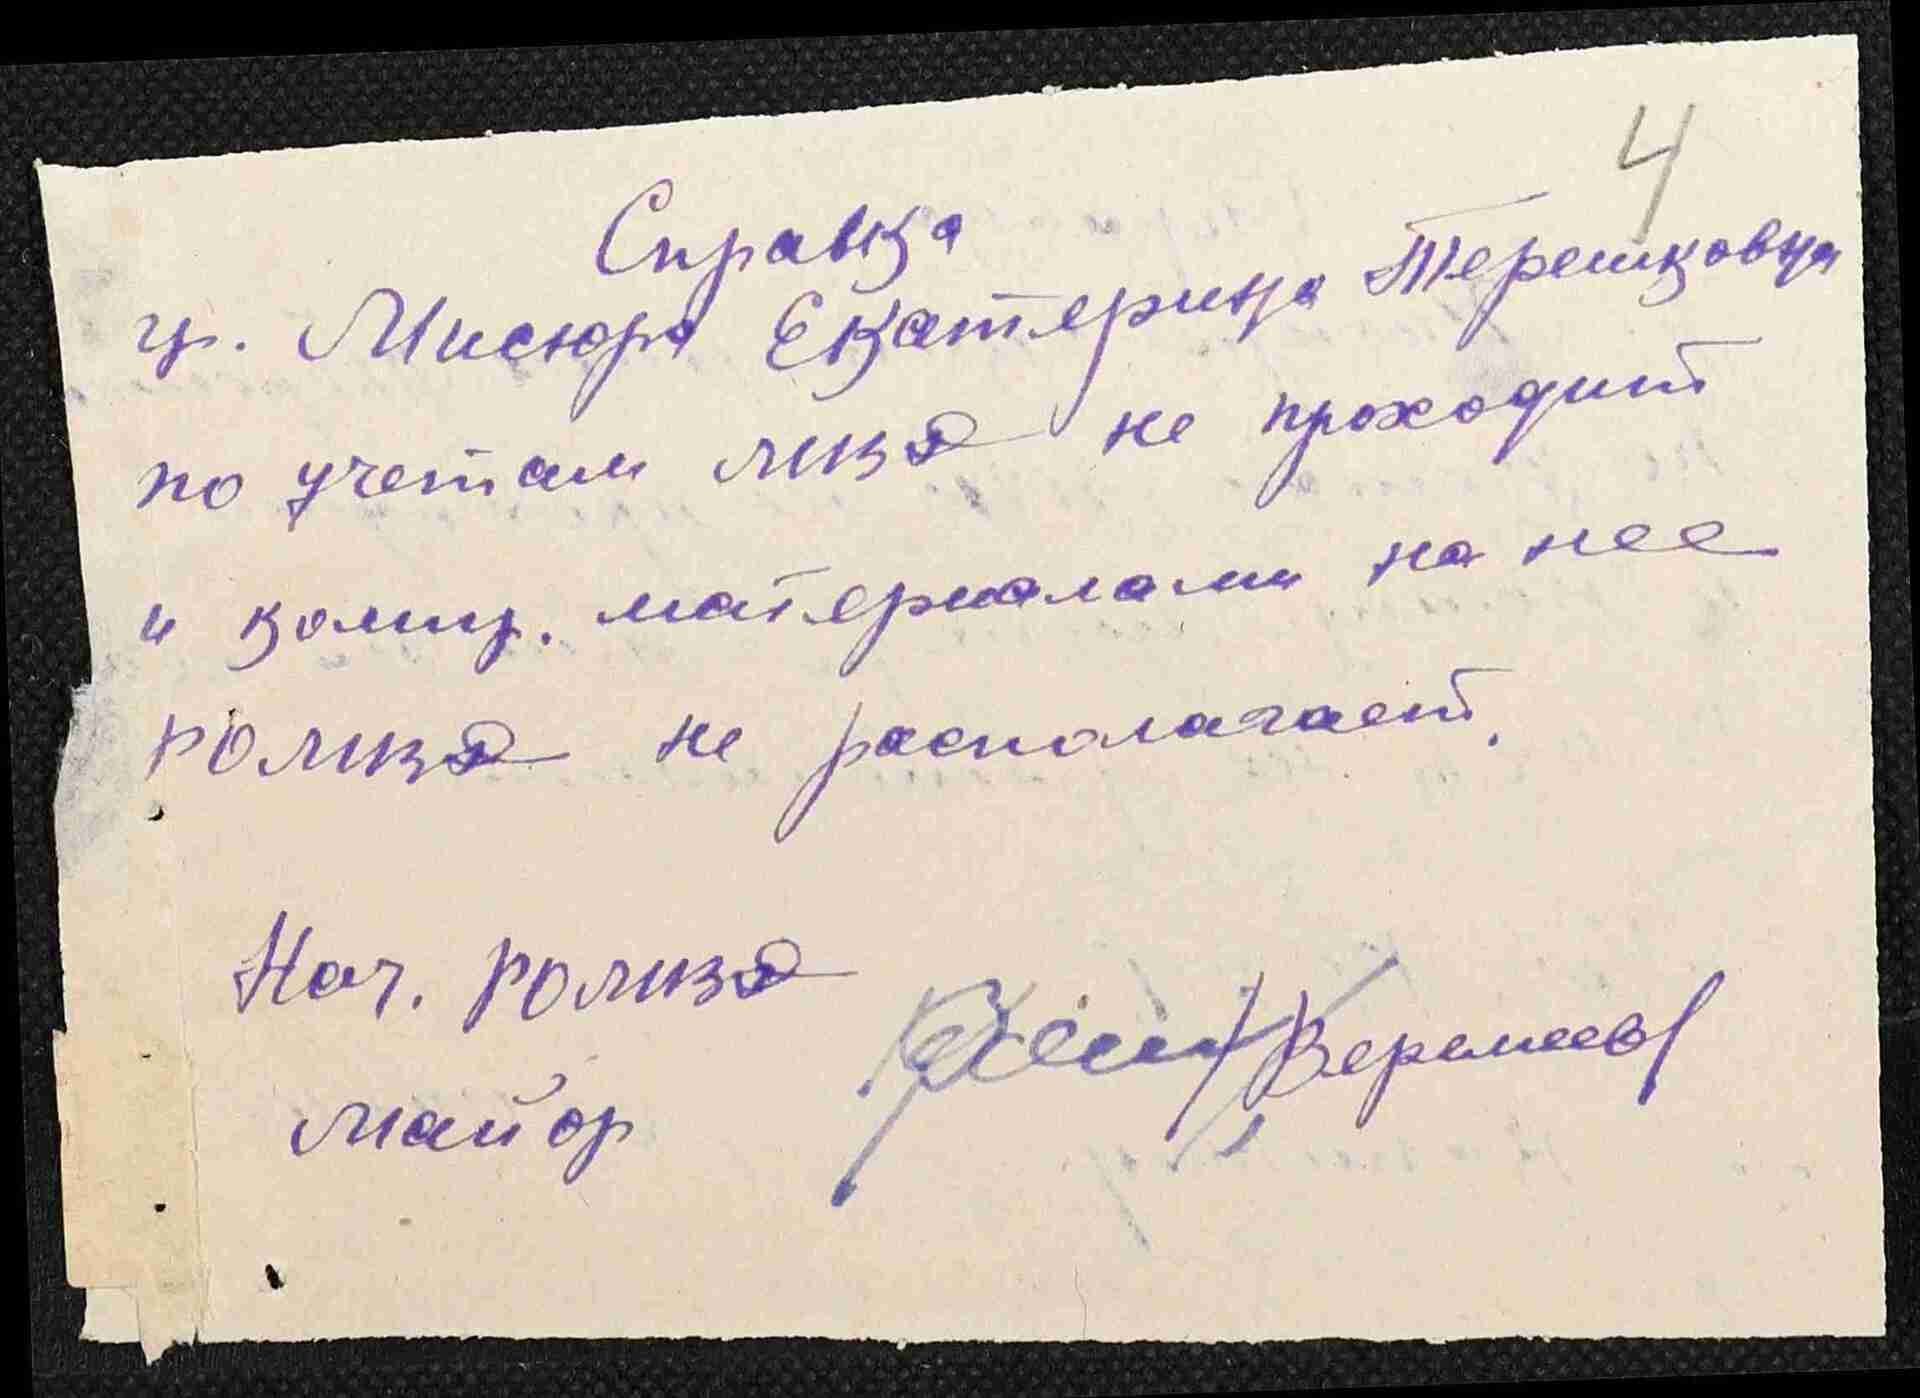 4
Справка
гр. Мисюра Екатерина Терешковна
по учетам МВД не проходит
и компр. материалами на нее
РОМВД не располагает.
Нач. РОМВД
майор /Веремеев/